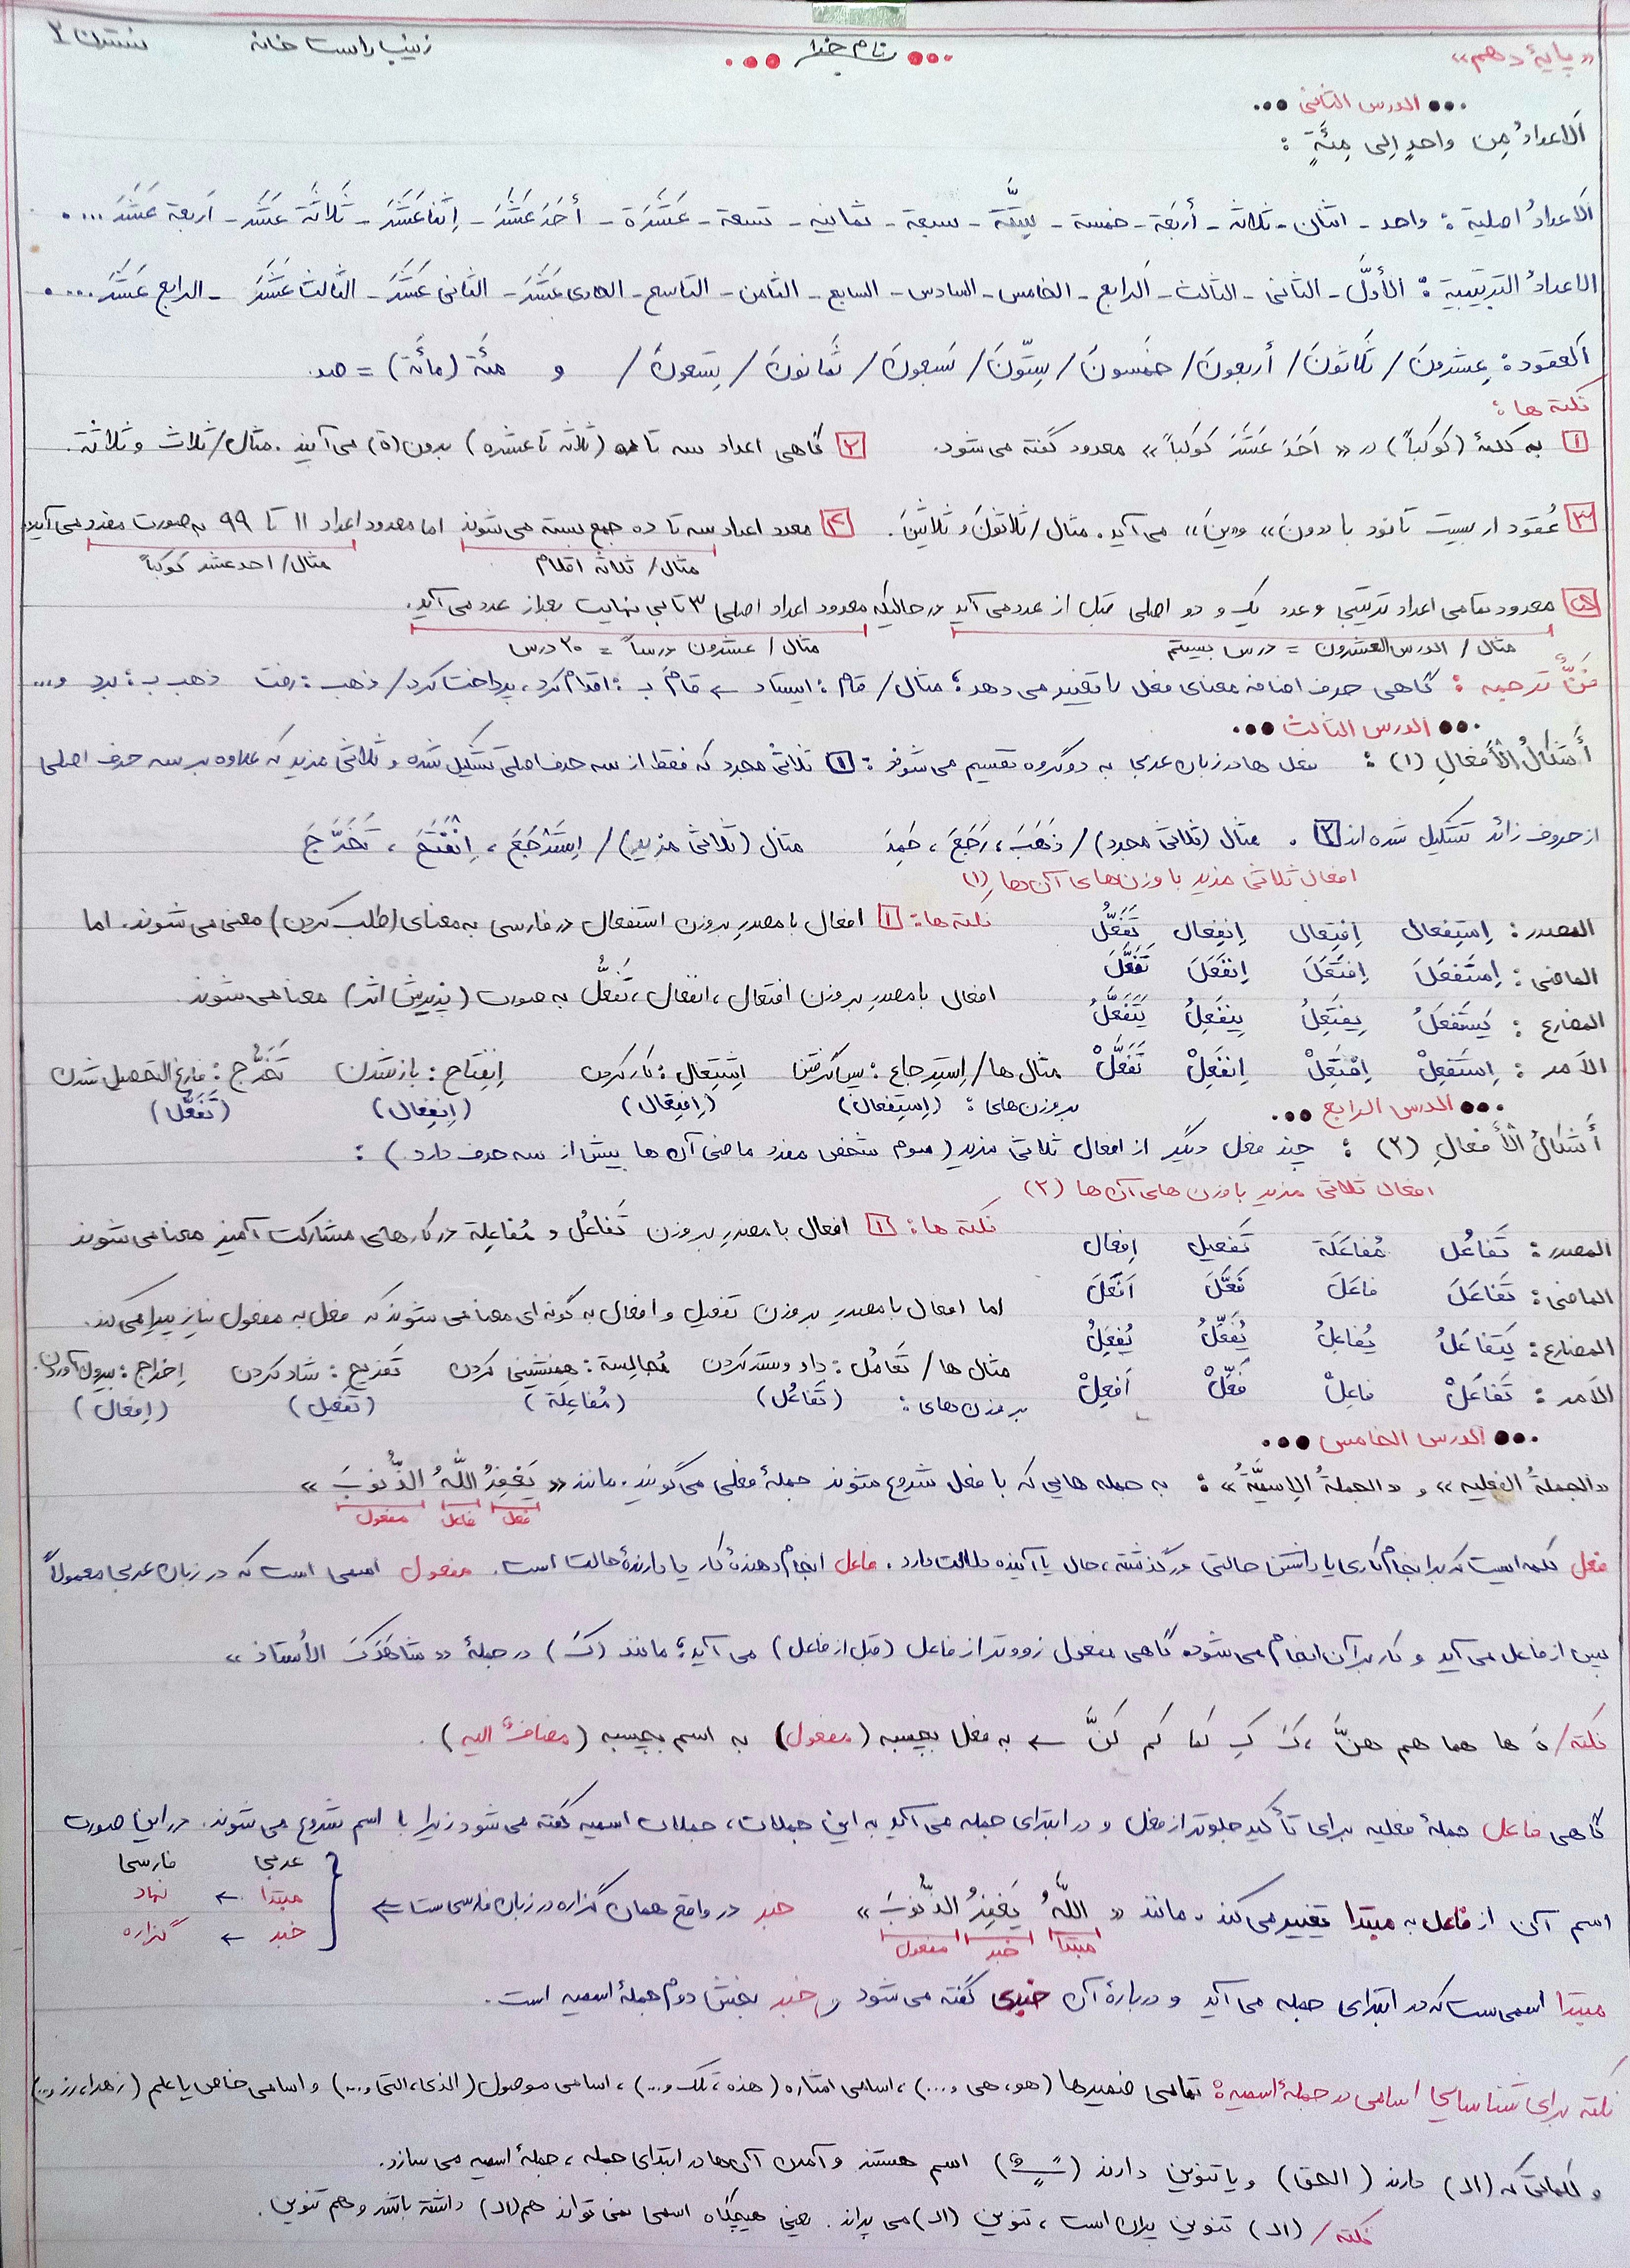 «پایهٔ دهم» بنام خدا زینب راست خانه
الدرس الثانی
اَلاعدادُ مِن واحدٍ اِلی مِئَةٍ :
اَلاعدادُ اصلیة : واحد - اثنان - ثلاثة - أربَعَة - خمسة - سِتَّة - سبعة - ثمانیه - تسعة - عَشَرَة - أحَدَ عَشَرَ - اِثنا عَشَرَ - ثَلاثَةَ عَشَر - اَربعة عَشَرَ ....
الاعدادُ الترتیبیة : الأوَّل - الثانی - الثالث - اَلرابع - الخامس - السادس - السابع - الثامن - التاسع - الحادی عَشَرَ - الثانی عَشَرَ - الثالث عَشَرَ - الرابع عَشَرَ ....
اَلعقود : عِشرونَ / ثَلاثونَ / أربعونَ / خَمسونَ / سِتّونَ / سَبعونَ / ثَمانونَ / تِسعونَ / و مئَة (مائَة) = صد.
نکته ها :
۱ به کلمهٔ (کَوکَباً) در « اَحَدَ عَشَرَ کَوکَباً» معدود گفته می شود. ۲ گاهی اعداد سه تا ده (ثلاثه تا عشره) بدون (ة) می آیند. مثال/ ثلاث و ثلاثة.
۳ عُقود از بیست تا نود با «ونَ» و «ینَ» می آید. مثال/ ثلاثونَ و ثلاثینَ. ۴ معدد اعداد سه تا ده جمع بسته می شوند اما معدود اعداد ۱۱ تا ۹۹ به صورت مفرد می آید.
مثال/ ثلاثه اقلام مثال/ احد عشر کوکباً
۵ معدود تمامی اعداد ترتیبی و عدد یک و دو اصلی قبل از عدد می آید در حالیکه معدود اعداد اصلی ۳ تا بی نهایت بعد از عدد می آید.
مثال/ الدرس العشرون = درس بیستم مثال/ عشرون درساً = ۲۰ درس
فَنُّ ترجمه : گاهی حرف اضافه معنای فعل را تغییر می دهد؛ مثال/ قام : ایستاد ← قامَ بـِ : اقدام کرد، پرداخت کرد/ ذهب : رفت ذهب بـ : برد و...
الدرس الثالث
أَشکالُ الأَفعالِ (۱) : فعل ها در زبان عربی به دو گروه تقسیم می شوند : ۱ ثلاثی مجرد که فقط از سه حرف اصلی تشکیل شده و ثلاثی مزید که علاوه بر سه حرف اصلی
از حروف زائد تشکیل شده اند ۲ . مثال (ثلاثی مجرد) / ذَهَبَ، رَجَعَ، حَمِدَ مثال (ثلاثی مزید) / اِستَرجَعَ، اِنفَتَحَ، تَخَرَّجَ
افعال ثلاثی مزید با وزن های آن ها (۱)
المصدر : اِستِفعال اِفتِعال اِنفِعال تَفَعُّل نکته ها : ۱ افعال با مصدرِ بروزن استفعال در فارسی به معنای (طلب کردن) معنی می شوند. اما
الماضی : اِستَفعَلَ اِفتَعَلَ اِنفَعَلَ تَفَعَّلَ افعال با مصدرِ بروزن افتعال ، انفعال ، تَفَعُّل به صورت (پذیرش اثر) معنا می شوند.
المضارع : یَستَفعِلُ یَفتَعِلُ یَنفَعِلُ یَتَفَعَّلُ
الأمر : اِستَفعِلْ اِفتَعِلْ اِنفَعِلْ تَفَعَّلْ مثال ها / اِستِرجاع : پس گرفتن اِشتِغال : کار کردن اِنفِتاح : باز شدن تَخَرُّج : فارغ التحصیل شدن
بروزن های : (اِستِفعال) (اِفتِعال) (اِنفِعال) (تَفَعُّل)
الدرس الرابع
أَشکالُ الأَفعالِ (۲) : چند فعل دیگر از افعال ثلاثی مزید (سوم شخص مفرد ماضی آن ها بیش از سه حرف دارد) :
افعال ثلاثی مزید با وزن های آن ها (۲)
المصدر : تَفاعُل مُفاعَلَة تَفعیل اِفعال نکته ها : ۱ افعال با مصدرِ بروزن تَفاعُل و مُفاعِلة در کارهای مشارکت آمیز معنا می شوند
الماضی : تَفاعَلَ فاعَلَ فَعَّلَ اَفعَلَ اما افعال با مصدرِ بروزن تفعیل و افعال به گونه ای معنا می شوند که فعل به مفعول نیاز پیدا می کند.
المضارع : یَتَفاعَلُ یُفاعِلُ یُفَعِّلُ یُفعِلُ
الأمر : تَفاعَلْ فاعِلْ فَعِّلْ اَفعِلْ مثال ها / تَعامُل : داد و ستد کردن مُجالِسة : همنشینی کردن تَفریح : شاد کردن اِخراج : بیرون آوردن.
بروزن های : (تَفاعُل) (مُفاعِلة) (تَفعیل) (اِفعال)
الدرس الخامس
«الجملةُ الفعلیه» و «الجملةُ الاِسمیَّةُ» : به جمله هایی که با فعل شروع میشوند جملهٔ فعلی می گویند. مانند « یَغفِرُ اللّٰهُ الذُّنوبَ »
فعل فاعل مفعول
فعل کلمه ایست که بر انجام کاری یا داشتن حالتی در گذشته، حال یا آینده دلالت دارد. فاعل انجام دهندهٔ کار یا دارندهٔ حالت است. مفعول اسمی است که در زبان عربی معمولاً
پس از فاعل می آید و کار بر آن انجام می شود. گاهی مفعول زودتر از فاعل (قبل از فاعل) می آید؛ مانند (کَ) در جملهٔ « شاهَدَکَ الأستاذ »
نکته/ ه ها هما هم هنَّ ، کَ کِ کما کم کنَّ ← به فعل بچسبه (مفعول) به اسم بچسبه (مضافٌ الیه) .
گاهی فاعل جملهٔ فعلیه برای تأکید جلوتر از فعل و در ابتدای جمله می آید به این جملات، جملات اسمیه گفته می شود زیرا با اسم شروع می شوند. در این صورت
اسم آن از فاعل به مبتدا تغییر می کند. مانند « اللّٰهُ یَغفِرُ الذُّنوبَ » خبر در واقع همان گزاره در زبان فارسی ست ⇐
مبتدا خبر مفعول
عربی فارسی
مبتدا ← نهاد
خبر ← گزاره
مبتدا اسمی ست که در ابتدای جمله می آید و دربارهٔ آن خبری گفته می شود و خبر بخش دوم جملهٔ اسمیه است.
نکته برای شناسایی اسامی در جملهٔ اسمیه : تمامی ضمیرها (هو، هی و...) ، اسامی اشاره (هذه، تلک و...) ، اسامی موصول (الذی، التی و...) و اسامی خاص یا علم (زهرا، رز و...)
و کلماتی که (الـ) دارند (الحق) و یا تنوین دارند ( ـًـٍـٌ ) اسم هستند و آمدن آن ها در ابتدای جمله ، جملهٔ اسمیه می سازد.
نکته/ (الـ) تنوین پران است ، تنوین (الـ) می پراند. یعنی هیچگاه اسمی نمی تواند هم (الـ) داشته باشد و هم تنوین.